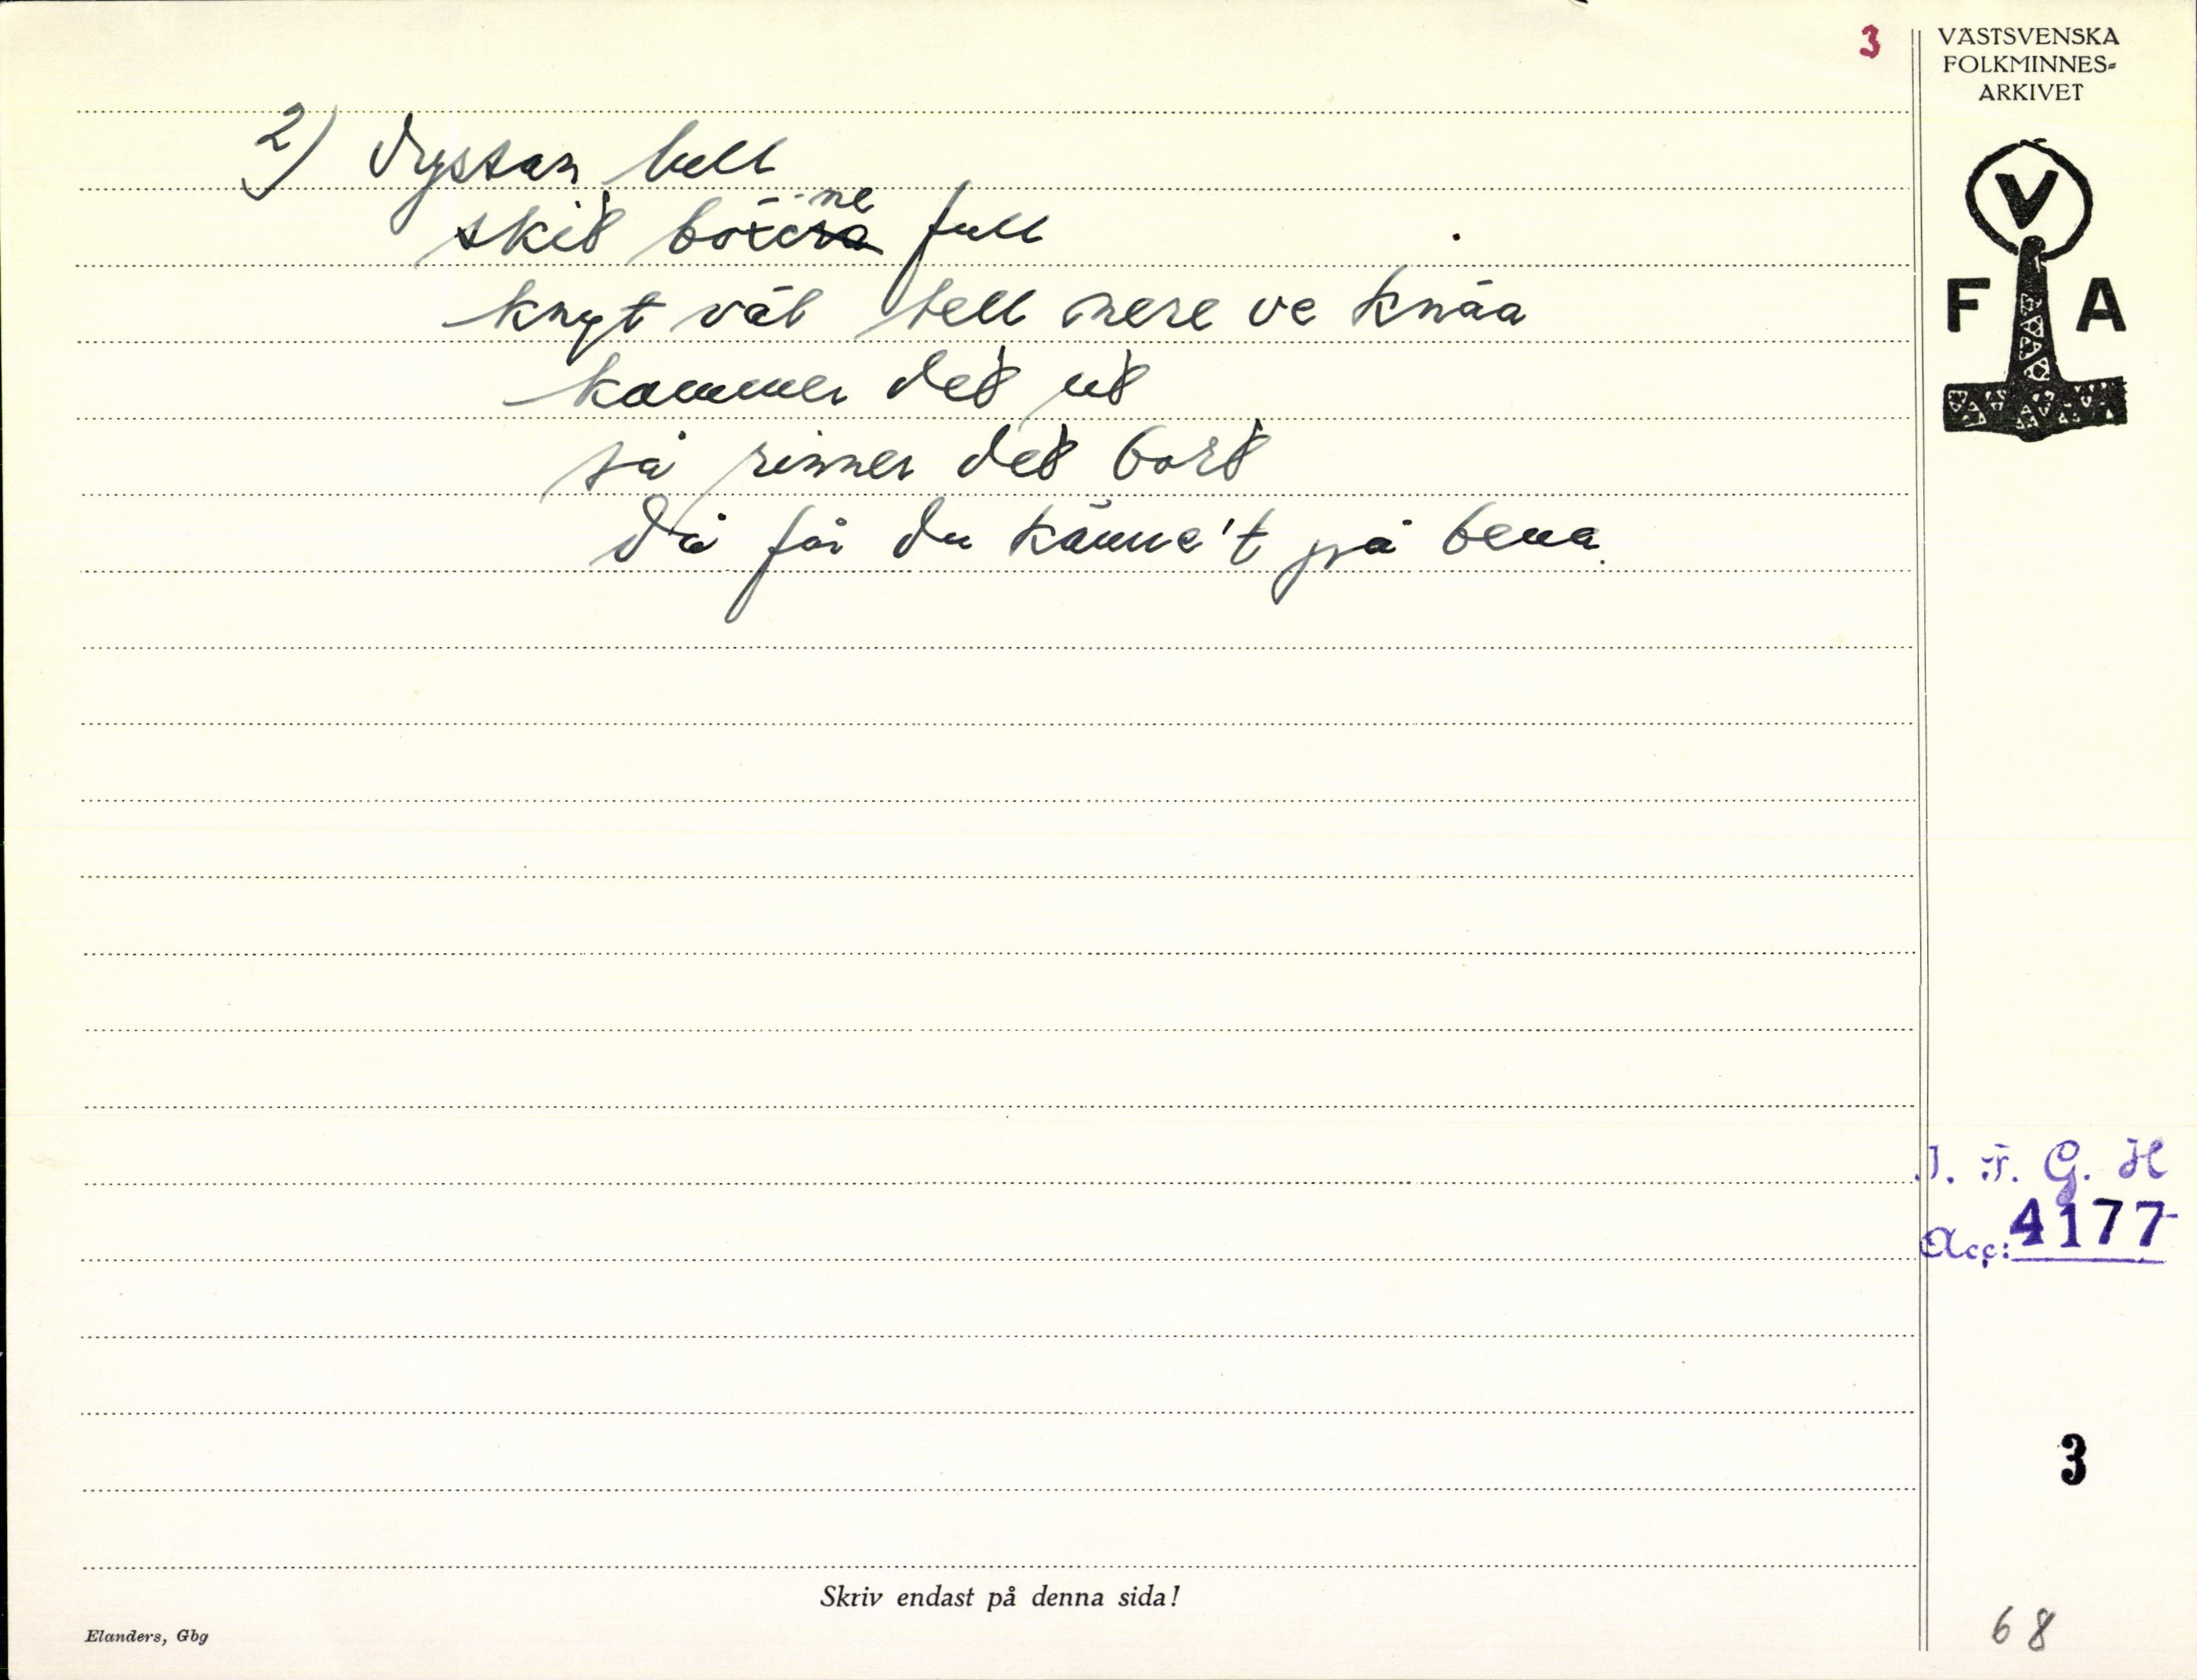 3
VÄSTSVENSKA
FOLKMINNES-
ARKIVET
V
F A
2) Dyssan lull
skit böxerna ne full
knyt väl tell nere ve knäa
kommer det ut
så rinner det bort
Då får du känne't på bena.
J. F. G. H
Acc: 4177
3
Skriv endast på denna sida!
Elanders, Gbg
68